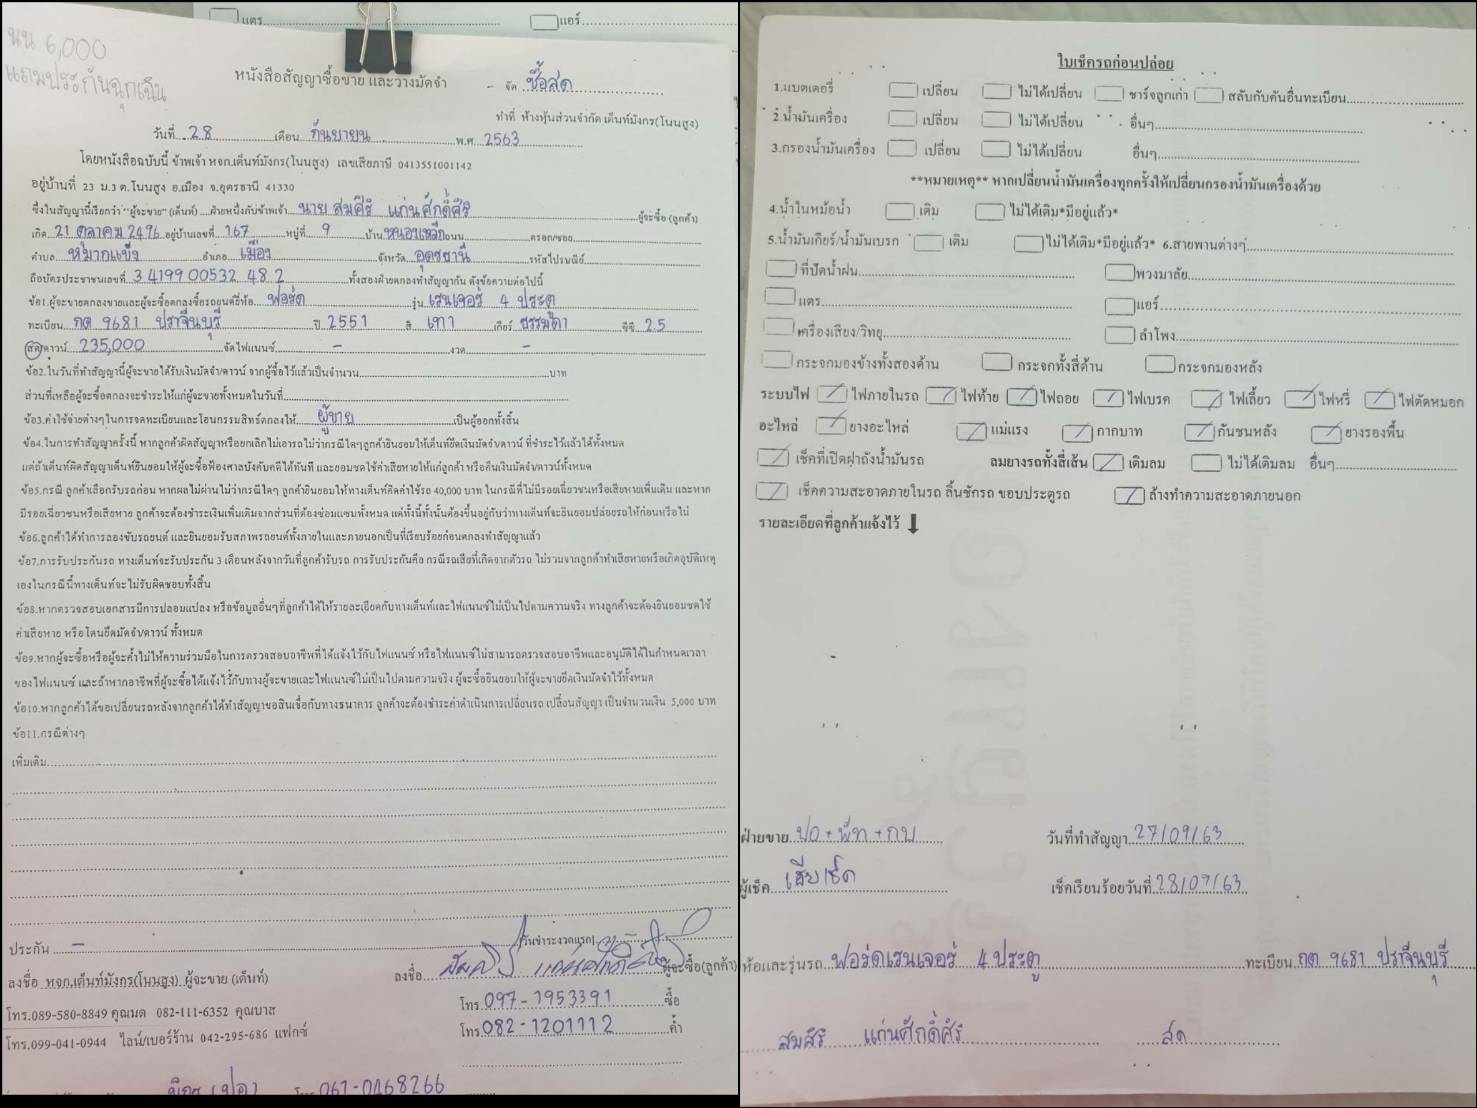 แตร
แอร์
นน 6,000
แถมประกันฉุกเฉิน
หนังสือสัญญาซื้อขาย และวางมัดจำ - จัด ซื้อสด
ทำที่ ห้างหุ้นส่วนจำกัด เต็นท์มังกร(โนนสูง)
วันที่ 28 เดือน กันยายน พ.ศ. 2563
โดยหนังสือฉบับนี้ ข้าพเจ้า หจก.เต็นท์มังกร(โนนสูง) เลขเสียภาษี 0413551001142
อยู่บ้านที่ 23 ม.3 ต.โนนสูง อ.เมือง จ.อุดรธานี 41330
ซึ่งในสัญญานี้เรียกว่า "ผู้จะขาย" (เต็นท์) ฝ่ายหนึ่งกับข้าพเจ้า นาย สมศิริ แก่นศักดิ์ศิริ ผู้จะซื้อ (ลูกค้า)
เกิด 21 ตุลาคม 2496 อยู่บ้านเลขที่ 167 หมู่ที่ 9 บ้าน หนองเหล็ก ถนน ตรอก/ซอย
ตำบล หมากแข้ง อำเภอ เมือง จังหวัด อุดรธานี รหัสไปรษณีย์
ถือบัตรประชาชนเลขที่ 3 4199 00532 48 2 ทั้งสองฝ่ายตกลงทำสัญญากัน ดังข้อความต่อไปนี้
ข้อ1.ผู้จะขายตกลงขายและผู้จะซื้อตกลงซื้อรถยนต์ยี่ห้อ ฟอร์ด รุ่น เรนเจอร์ 4 ประตู
ทะเบียน กต 9681 ปราจีนบุรี ปี 2551 สี เทา เกียร์ ธรรมดา ซีซี 2.5
สด/ดาวน์ 235,000 จัดไฟแนนซ์ - งวด -
ข้อ2.ในวันที่ทำสัญญานี้ผู้จะขายได้รับเงินมัดจำ/ดาวน์ จากผู้ซื้อไว้แล้วเป็นจำนวน บาท
ส่วนที่เหลือผู้จะซื้อตกลงจะชำระให้แก่ผู้จะขายทั้งหมดในวันที่
ข้อ3.ค่าใช้จ่ายต่างๆในการจดทะเบียนและโอนกรรมสิทธ์ตกลงให้ ผู้ขาย เป็นผู้ออกทั้งสิ้น
ข้อ4.ในการทำสัญญาครั้งนี้ หากลูกค้าผิดสัญญาหรือยกเลิกไม่เอารถไม่ว่ากรณีใดๆลูกค้ายินยอมให้เต็นท์ยึดเงินมัดจำ/ดาวน์ ที่ชำระไว้แล้วได้ทั้งหมด
แต่ถ้าเต็นท์ผิดสัญญาเต็นท์ยินยอมให้ผู้จะซื้อฟ้องศาลบังคับคดีได้ทันที และยอมชดใช้ค่าเสียหายให้แก่ลูกค้า หรือคืนเงินมัดจำ/ดาวน์ทั้งหมด
ข้อ5.กรณี ลูกค้าเลือกรับรถก่อน หากผลไม่ผ่านไม่ว่ากรณีใดๆ ลูกค้ายินยอมให้ทางเต็นท์คิดค่าใช้รถ 40,000 บาท ในกรณีที่ไม่มีรอยเฉี่ยวชนหรือเสียหายเพิ่มเติม และหาก
มีรอยเฉี่ยวชนหรือเสียหาย ลูกค้าจะต้องชำระเงินเพิ่มเติมจากส่วนที่ต้องซ่อมแซมทั้งหมด แต่ทั้งนี้ทั้งนั้นต้องขึ้นอยู่กับว่าทางเต็นท์จะยินยอมปล่อยรถให้ก่อนหรือไม่
ข้อ6.ลูกค้าได้ทำการลองขับรถยนต์ และยินยอมรับสภาพรถยนต์ทั้งภายในและภายนอกเป็นที่เรียบร้อยก่อนตกลงทำสัญญาแล้ว
ข้อ7.การรับประกันรถ ทางเต็นท์จะรับประกัน 3 เดือนหลังจากวันที่ลูกค้ารับรถ การรับประกันคือ กรณีรถเสียที่เกิดจากตัวรถ ไม่รวมจากลูกค้าทำเสียหายหรือเกิดอุบัติเหตุ
เองในกรณีนี้ทางเต็นท์จะไม่รับผิดชอบทั้งสิ้น
ข้อ8.หากตรวจสอบเอกสารมีการปลอมแปลง หรือข้อมูลอื่นๆที่ลูกค้าได้ให้รายละเอียดกับทางเต็นท์และไฟแนนซ์ไม่เป็นไปตามความจริง ทางลูกค้าจะต้องยินยอมชดใช้
ค่าเสียหาย หรือโดนยึดมัดจำ/ดาวน์ ทั้งหมด
ข้อ9.หากผู้จะซื้อหรือผู้จะค้ำไม่ให้ความร่วมมือในการตรวจสอบอาชีพที่ได้แจ้งไว้กับไฟแนนซ์ หรือไฟแนนซ์ไม่สามารถตรวจสอบอาชีพและอนุมัติได้ในกำหนดเวลา
ของไฟแนนซ์ และถ้าหากอาชีพที่ผู้จะซื้อได้แจ้งไว้กับทางผู้จะขายและไฟแนนซ์ไม่เป็นไปตามความจริง ผู้จะซื้อยินยอมให้ผู้จะขายยึดเงินมัดจำไว้ทั้งหมด
ข้อ10.หากลูกค้าได้ขอเปลี่ยนรถหลังจากลูกค้าได้ทำสัญญาขอสินเชื่อกับทางธนาคาร ลูกค้าจะต้องชำระค่าดำเนินการเปลี่ยนรถ เปลี่ยนสัญญา เป็นจำนวนเงิน 5,000 บาท
ข้อ11.กรณีต่างๆ
เพิ่มเติม
ประกัน - วันชำระงวดแรก
ลงชื่อ หจก.เต็นท์มังกร(โนนสูง) ผู้จะขาย (เต็นท์) ลงชื่อ สมศิริ แก่นศักดิ์ศิริ ผู้จะซื้อ(ลูกค้า)
โทร.089-580-8849 คุณมด 082-111-6352 คุณบาส โทร. 097-1953391 ซื้อ
โทร.099-041-0944 ไลน์/เบอร์ร้าน 042-295-686 แฟกซ์ โทร. 082-1201112 ค้ำ
โทร 061-0468266
ใบเช็ครถก่อนปล่อย
1.แบตเตอรี่ เปลี่ยน ไม่ได้เปลี่ยน ชาร์จลูกเก่า สลับกับคันอื่นทะเบียน
2.น้ำมันเครื่อง เปลี่ยน ไม่ได้เปลี่ยน อื่นๆ
3.กรองน้ำมันเครื่อง เปลี่ยน ไม่ได้เปลี่ยน อื่นๆ
**หมายเหตุ** หากเปลี่ยนน้ำมันเครื่องทุกครั้งให้เปลี่ยนกรองน้ำมันเครื่องด้วย
4.น้ำในหม้อน้ำ เติม ไม่ได้เติม*มีอยู่แล้ว*
5.น้ำมันเกียร์/น้ำมันเบรก เติม ไม่ได้เติม*มีอยู่แล้ว* 6.สายพานต่างๆ
ที่ปัดน้ำฝน พวงมาลัย
แตร แอร์
เครื่องเสียง/วิทยุ ลำโพง
กระจกมองข้างทั้งสองด้าน กระจกทั้งสี่ด้าน กระจกมองหลัง
ระบบไฟ ไฟภายในรถ ไฟท้าย ไฟถอย ไฟเบรค ไฟเลี้ยว ไฟหรี่ ไฟตัดหมอก
อะไหล่ ยางอะไหล่ แม่แรง กากบาท กันชนหลัง ยางรองพื้น
เช็คที่เปิดฝาถังน้ำมันรถ ลมยางรถทั้งสี่เส้น เติมลม ไม่ได้เติมลม อื่นๆ
เช็คความสะอาดภายในรถ ลิ้นชักรถ ขอบประตูรถ ล้างทำความสะอาดภายนอก
รายละเอียดที่ลูกค้าแจ้งไว้
ฝ่ายขาย ปอ+พัท+กบ วันที่ทำสัญญา 27/09/63
ผู้เช็ค เช็คเรียบร้อยวันที่ 28/09/63
ห้อและรุ่นรถ ฟอร์ดเรนเจอร์ 4 ประตู ทะเบียน กต 9681 ปราจีนบุรี
สมศิริ แก่นศักดิ์ศิริ สด